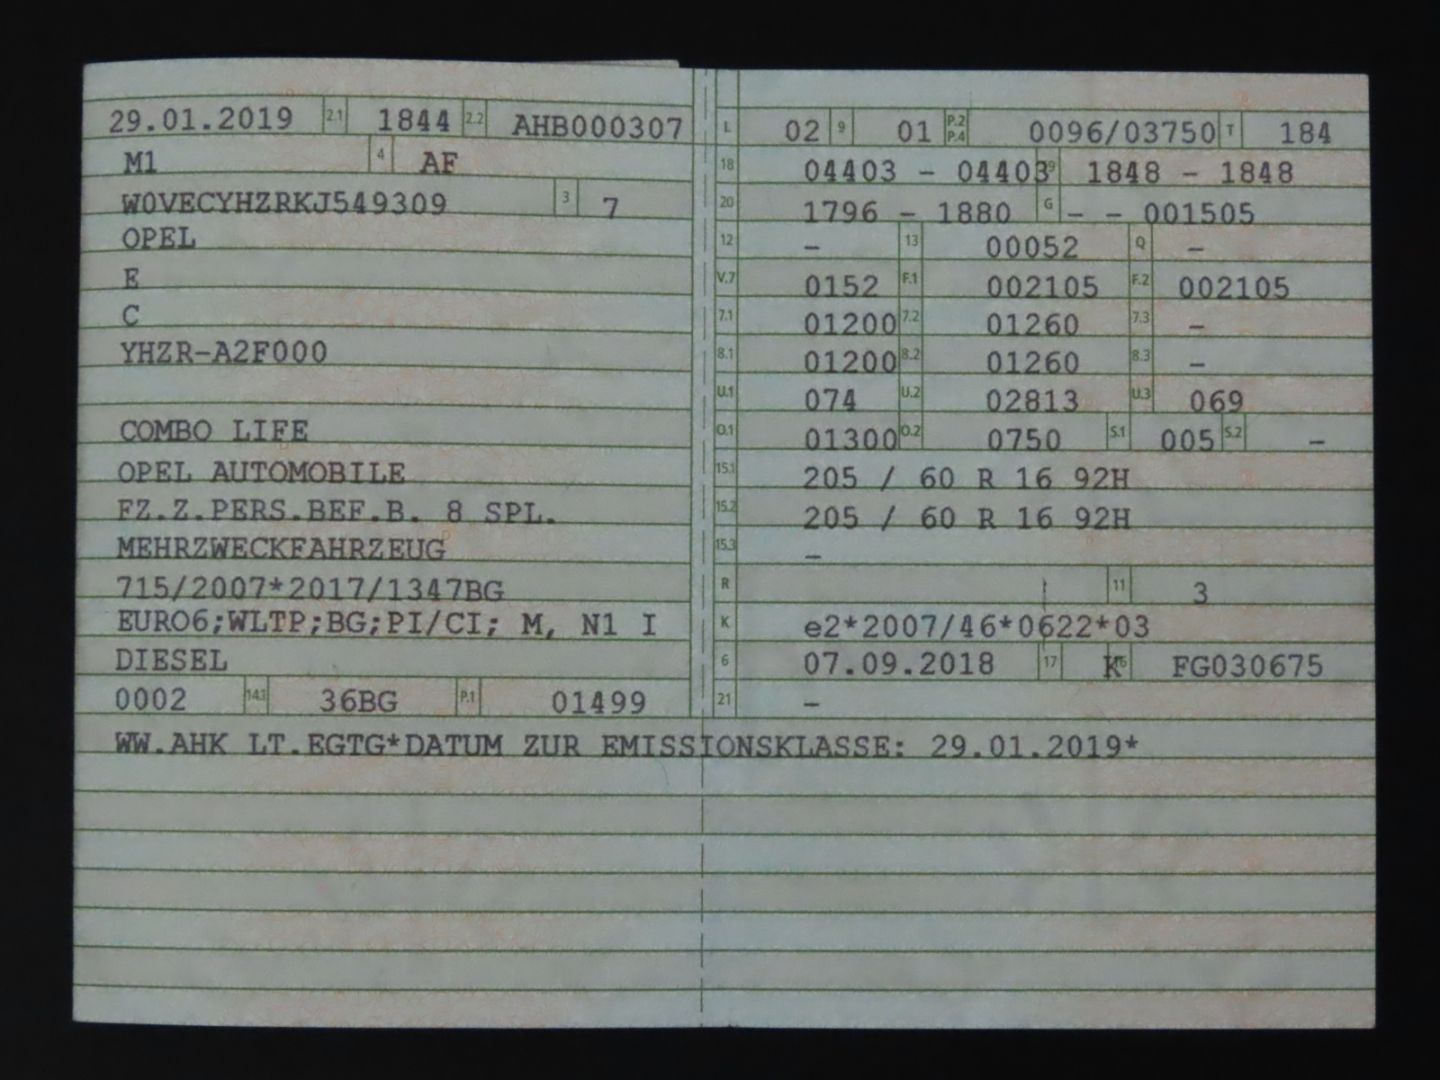 29.01.2019 2.1 1844 2.2 AHB000307
M1 4 AF
W0VECYHZRKJ549309 3 7
OPEL
E
C
YHZR-A2F000
COMBO LIFE
OPEL AUTOMOBILE
FZ.Z.PERS.BEF.B. 8 SPL.
MEHRZWECKFAHRZEUG
715/2007*2017/1347BG
EURO6;WLTP;BG;PI/CI; M, N1 I
DIESEL
0002 14.3 36BG P.1 01499
L 02 9 01 P.2 P.4 0096/03750 T 184
18 04403 - 04403 19 1848 - 1848
20 1796 - 1880 G - - 001505
12 - 13 00052 Q -
V.7 0152 F.1 002105 F.2 002105
7.1 01200 7.2 01260 7.3 -
8.1 01200 8.2 01260 8.3 -
U.1 074 U.2 02813 U.3 069
O.1 01300 O.2 0750 S.1 005 S.2 -
15.1 205 / 60 R 16 92H
15.2 205 / 60 R 16 92H
15.3 -
R 11 3
K e2*2007/46*0622*03
6 07.09.2018 17 K 16 FG030675
21 -
WW.AHK LT.EGTG*DATUM ZUR EMISSIONSKLASSE: 29.01.2019*